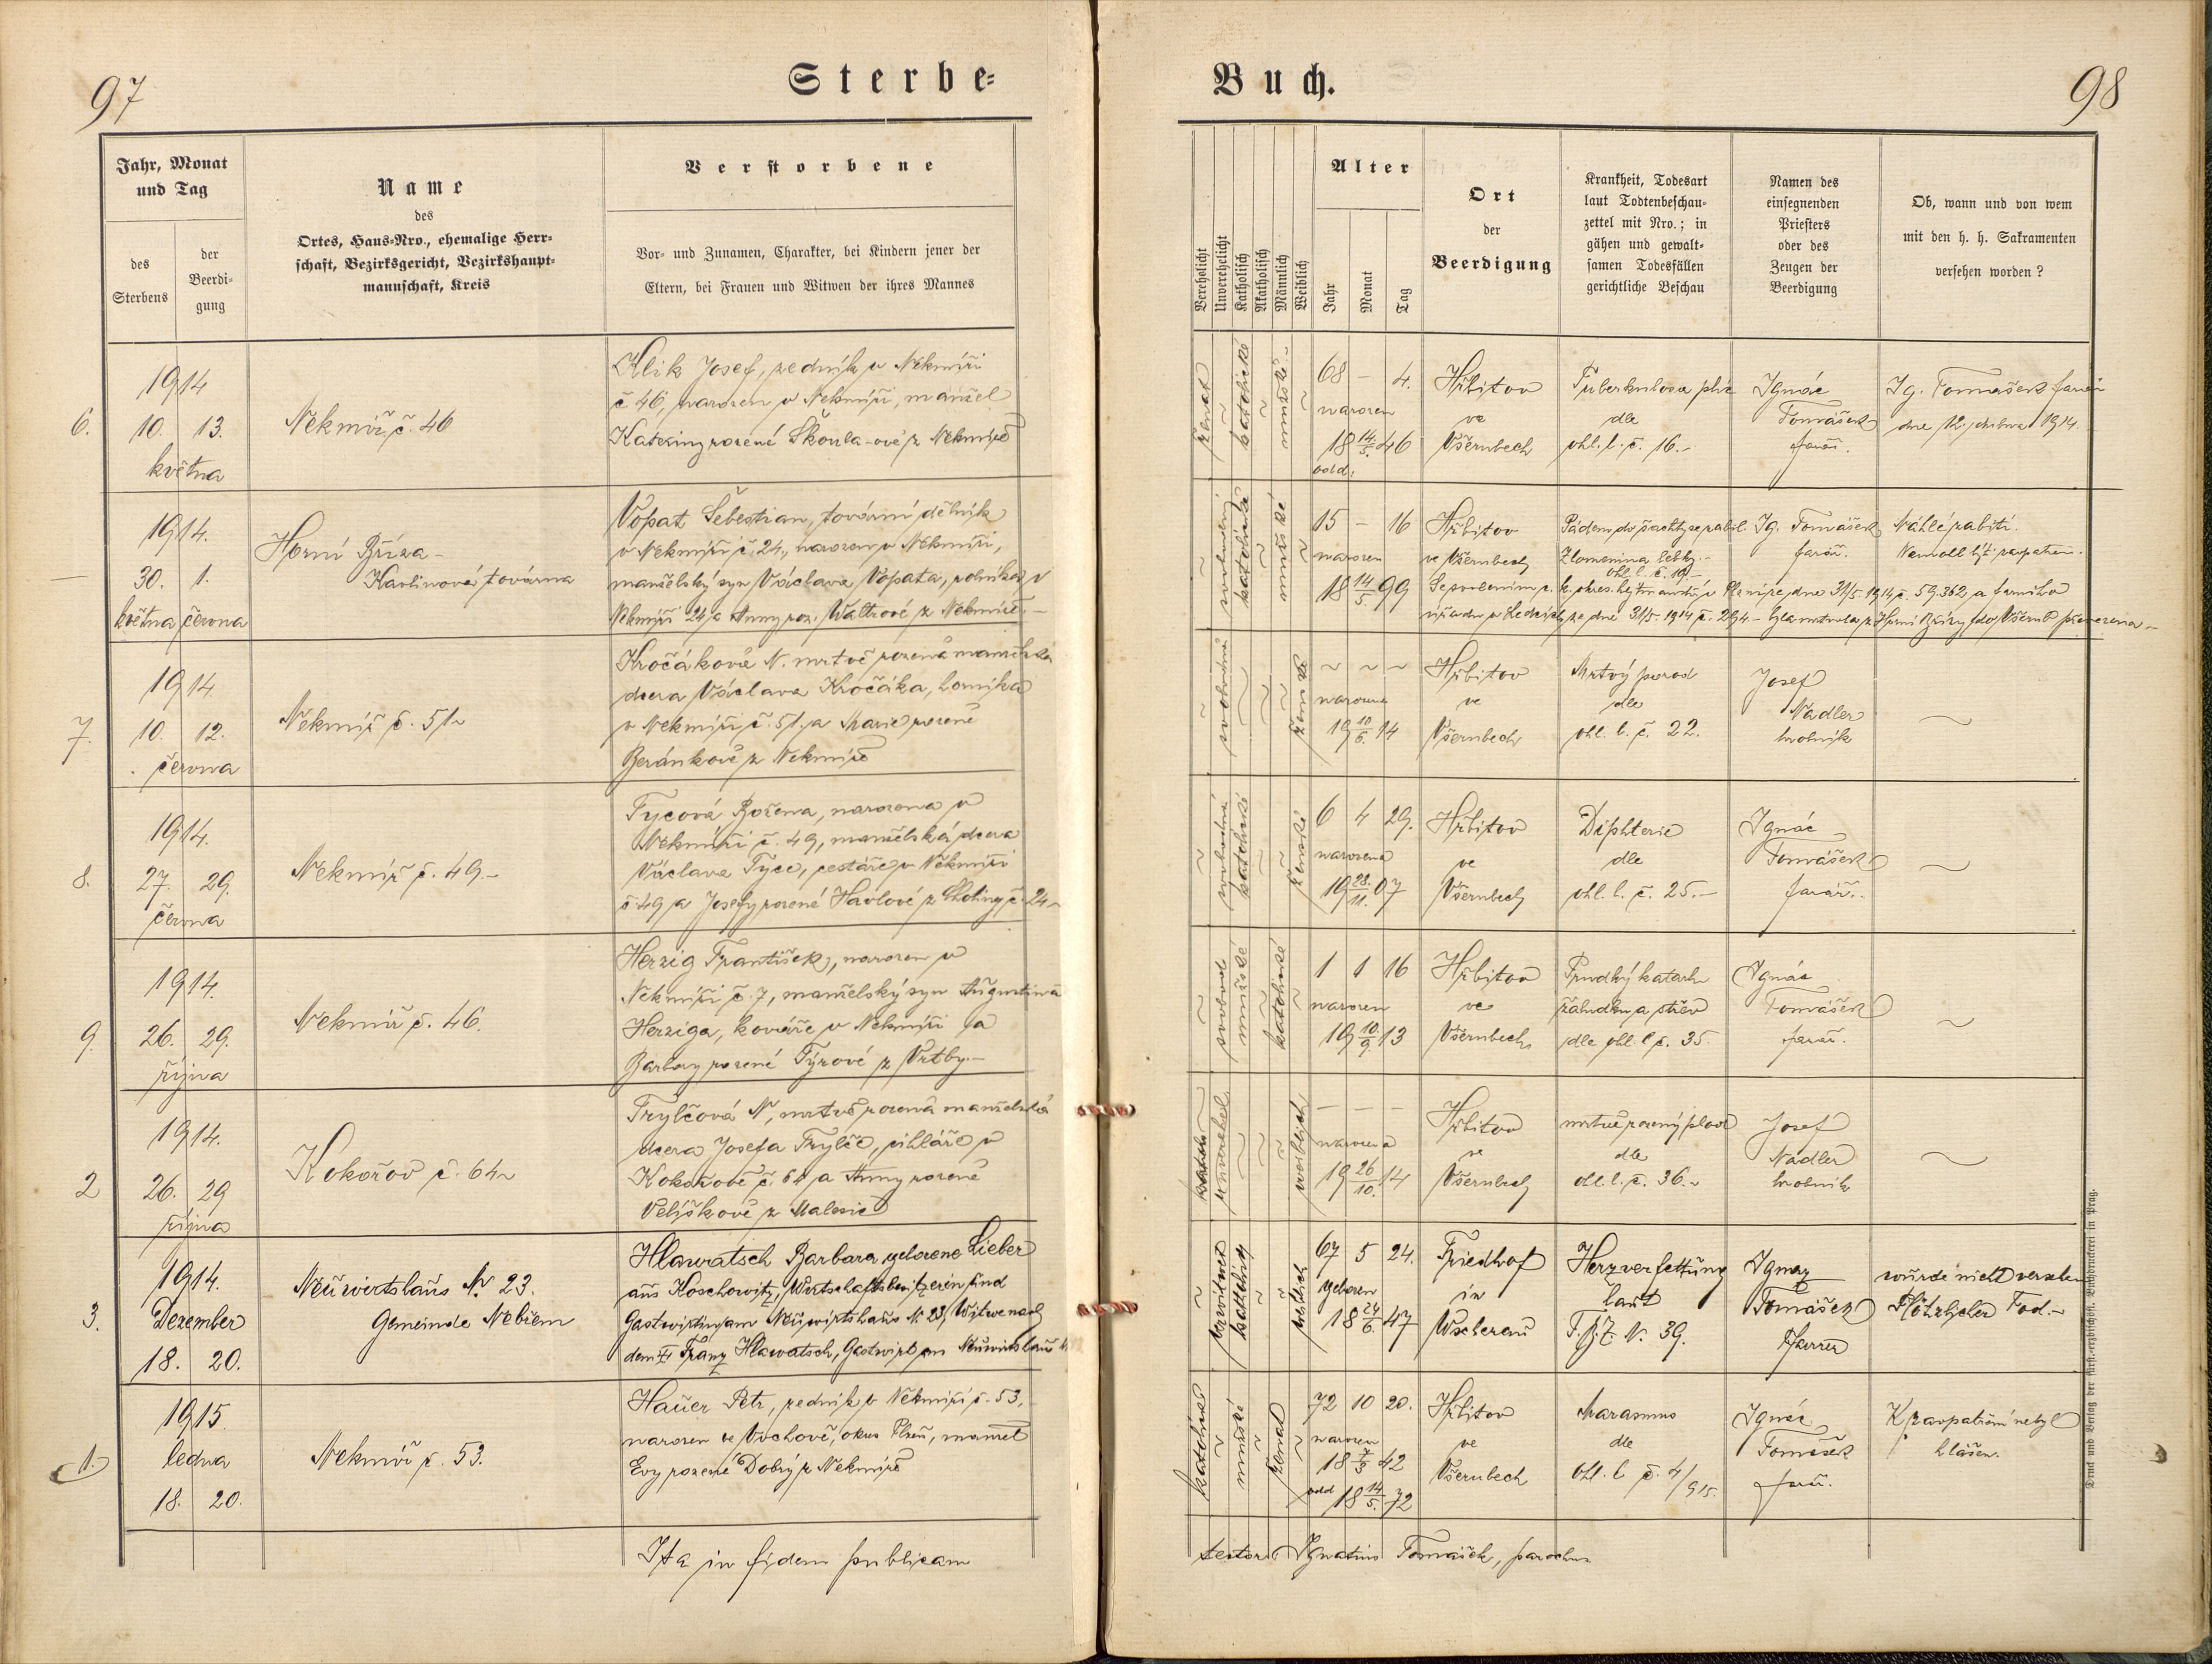 97
Sterbe=
Jahr, Monat
und Tag
des
Sterbens
der
Beerdi-
gung
Name
des
Ortes, Haus-Nro., ehemalige Herr-
schaft, Bezirksgericht, Bezirkshaupt-
mannschaft, Kreis
Verstorbene
Vor- und Zunamen, Charakter, bei Kindern jener der
Eltern, bei Frauen und Witwen der ihres Mannes
6.
1914
10. 13.
května
Nekmíř č. 46
Klik Josef, zedník v Nekmíři
č 46, narozen v Nekmíři, manžel
Kateřiny rozené z Nekmíře
1914.
30. 1.
května června
Horní Bříza -
Kaolinová továrna
Vopat Šebestian, tovární dělník
v Nekmíři č. 24, narozen v Nekmíři,
manželský syn Václava Vopata, rolníka v
Nekmíři 24 a Anny roz. Waltrové z Nekmíře. -
7.
1914
10. 12.
června
Nekmíř č. 51
Kročáková N. mrtvě rozená manželská
dcera Václava Kročáka, horníka
v Nekmíři č. 51. a Marie rozené
Beránkové z Nekmíře
8.
1914.
27. 29.
června
Nekmíř č. 49.-
Tycová Božena, narozena v
Nekmíři č. 49, manželská dcera
Václava Tyce, cestáře v Nekmíři
č. 49 a Josefy rozené Havlové z Chotiny č. 24
9.
1914.
26. 29.
října
Nekmíř č. 46.
Herzig František, narozen v
Nekmíři č. 7, manželský syn Augustina
Herziga, kováře v Nekmíři a
Barbory rozené Týrové z Vrtby.-
2
1914.
26. 29
října
Kokořov č. 64
Frylčová N, mrtvě rozená manželská
dcera Josefa Frylče, cihláře v
Kokořově č. 64 a Anny rozené
Velíškové z Malesic
3.
1914.
Dezember
18. 20.
Neuwirtshaus N. 23.
Gemeinde Nebřem
Hlawatsch Barbara, geborene Lieber
aus Koschowitz, Wirtschaftsbesitzerin und
Gastwirtin am Neuwirtshaus N. 23, Witwe nach
dem Franz Hlawatsch, Gastwirt am Neuwirtshaus
1.
1915.
ledna
18. 20.
Nekmíř č. 53.
Hauer Petr, zedník v Nekmíři č. 53,
narozen ve Vochově, okres Plzeň, manžel
Evy rozené Dobrý z Nekmíře
Ita in fidem publicam
Buch.
98
Verehelicht
Unverehelicht
Katholisch
Akatholisch
Männlich
Weiblich
Alter
Jahr
Monat
Tag
Ort
der
Beerdigung
Krankheit, Todesart
laut Todtenbeschau-
zettel mit Nro.; in
gähen und gewalt-
samen Todesfällen
gerichtliche Beschau
Namen des
einsegnenden
Priesters
oder des
Zeugen der
Beerdigung
Ob, wann und von wem
mit den h. h. Sakramenten
versehen worden?
ženat
katolické
mužské
68 - 4.
narozen
18 14/5. 46
Hřbitov
ve
Všerubech
Tuberkulosa plic
dle
ohl. l. č. 16.-
Ignác
Tomášek
farář.
Ig. Tomášek farář
dne 12. 1914.
katolické
mužské
15 - 16
narozen
18 14/5. 99
Hřbitov
ve Všerubech
Pádem do šachty se zabil.
Zlomenina lebky.-
ohl. l. č. 19.-
Ig. Tomášek
farář.
Náhlé zabití.
Nemohl být zaopatřen.
S povolením c. k. okres. hejtmanství v Plzni ze dne 31/5. 1914 č. 59.362 a farního
úřadu v Ledcích ze dne 31/5. 1914 č. 294.- byla mrtvola z Horní Břízy do Všerub převezena.-
svobodná
ženské
~ ~ ~
narozena
19 10/6. 14
Hřbitov
ve
Všerubech
Mrtvý porod
dle
ohl. l. č. 22.
Josef
Nadler
hrobník
svobodná
katolické
ženské
6 4 29.
narozena
19 28./11. 07
Hřbitov
ve
Všerubech
Diphterie
dle
ohl. l. č. 25.-
Ignác
Tomášek
farář.
svobod
mužské
katolické
1 1 16
narozen
19 10./9. 13
Hřbitov
ve
Všerubech
Prudký katarh
žaludku a střev
dle ohl. l. č. 35.
Ignác
Tomášek
farář.
- - -
narozena
19 26/10. 14
Hřbitov
ve
Všerubech
mrtvě rozený plod
dle
ohl. l. č. 36.
Josef
Nadler
hrobník
verwitwet
katholisch
weiblich
67 5 24.
geboren
18 24/6. 47
Friedhof
in
Wscherau
Herzverfettung
laut
T.B.Z. N. 39.
Ignaz
Tomášek
Pfarrer
wurde nicht versehen
Plötzlicher Tod.-
katolické
mužské
ženat
72 10 20.
narozen
42
odd 18 14/5. 72
Hřbitov
ve
Všerubech
Marasmus
dle
ohl. l. č. 4/915.
Ignác
Tomášek
farář.
K zaopatření nebyl
hlášen.
testor Ignatius Tomášek, parochus
Druck und Verlag der fürst.-erzbischöfl. Buchdruckerei in Prag.